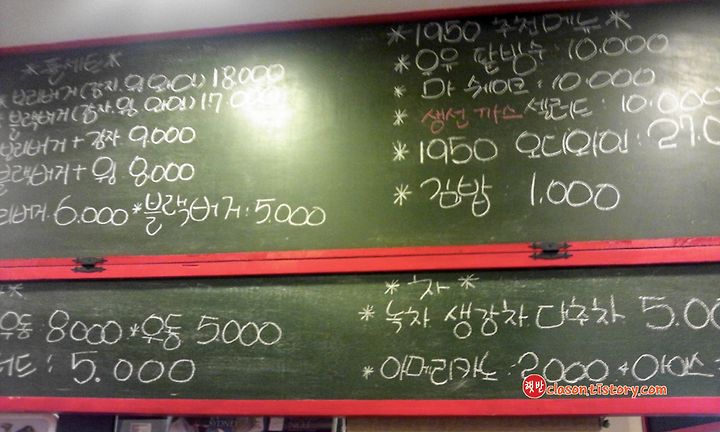 *풀세트*
브리버거(감자.윙.와인) 18.000
블랙버거(감자.윙.와인) 17.000
브리버거+감자 9.000
블랙버거+윙 8000
리버거. 6.000 *블랙버거: 5.000
*1950 추천메뉴*
* 우유 팥빙수: 10.000
* 마 쉐이크: 10.000
* 생선까스 샐러드: 10.000
* 1950 오디와인: 27.0
* 김밥 1.000
우동 8000 *우동 5.000
5.000
* 차 *
* 녹차 생강차 대추차 5.00
* 아메리카노 2.000 +아이스
햇반
closontistory.com